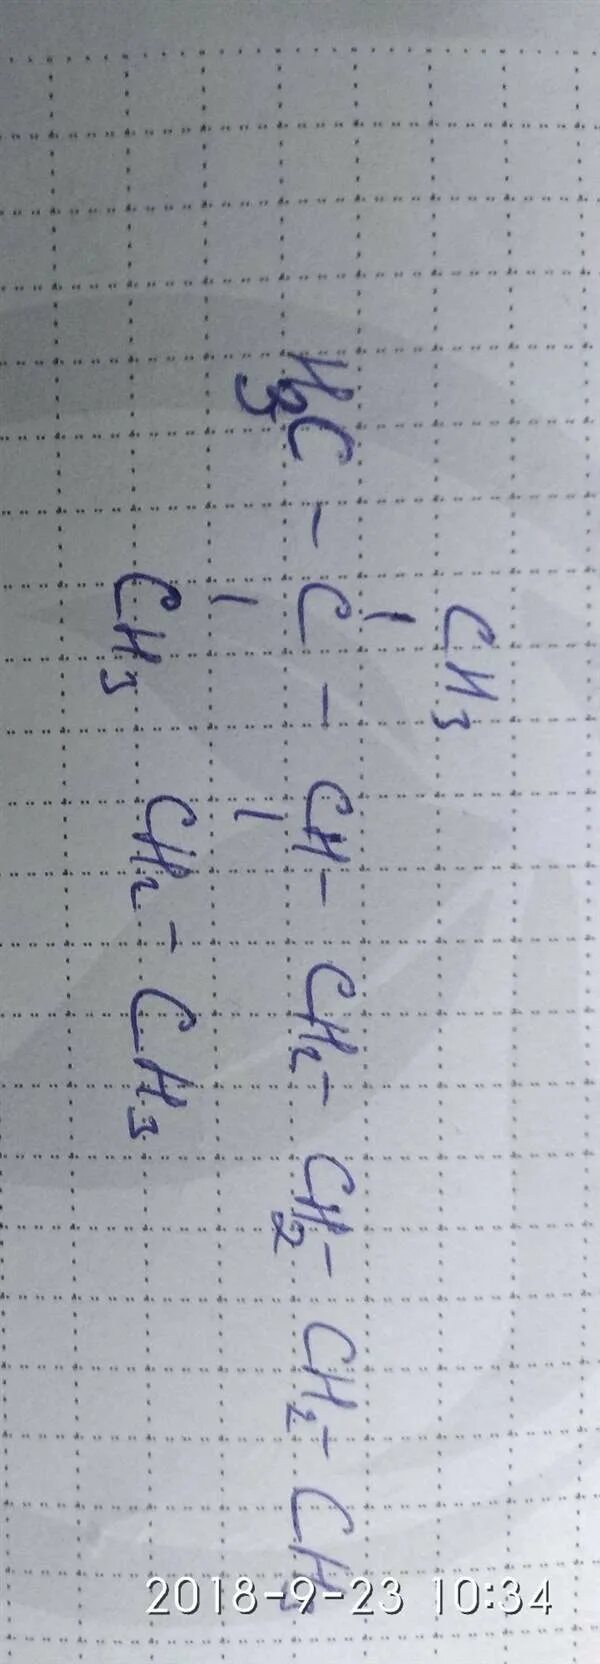 CH3
H3C - C - CH - CH2 - CH2 - CH2 - CH3
CH3 CH2 - CH3
2018-9-23 10:34